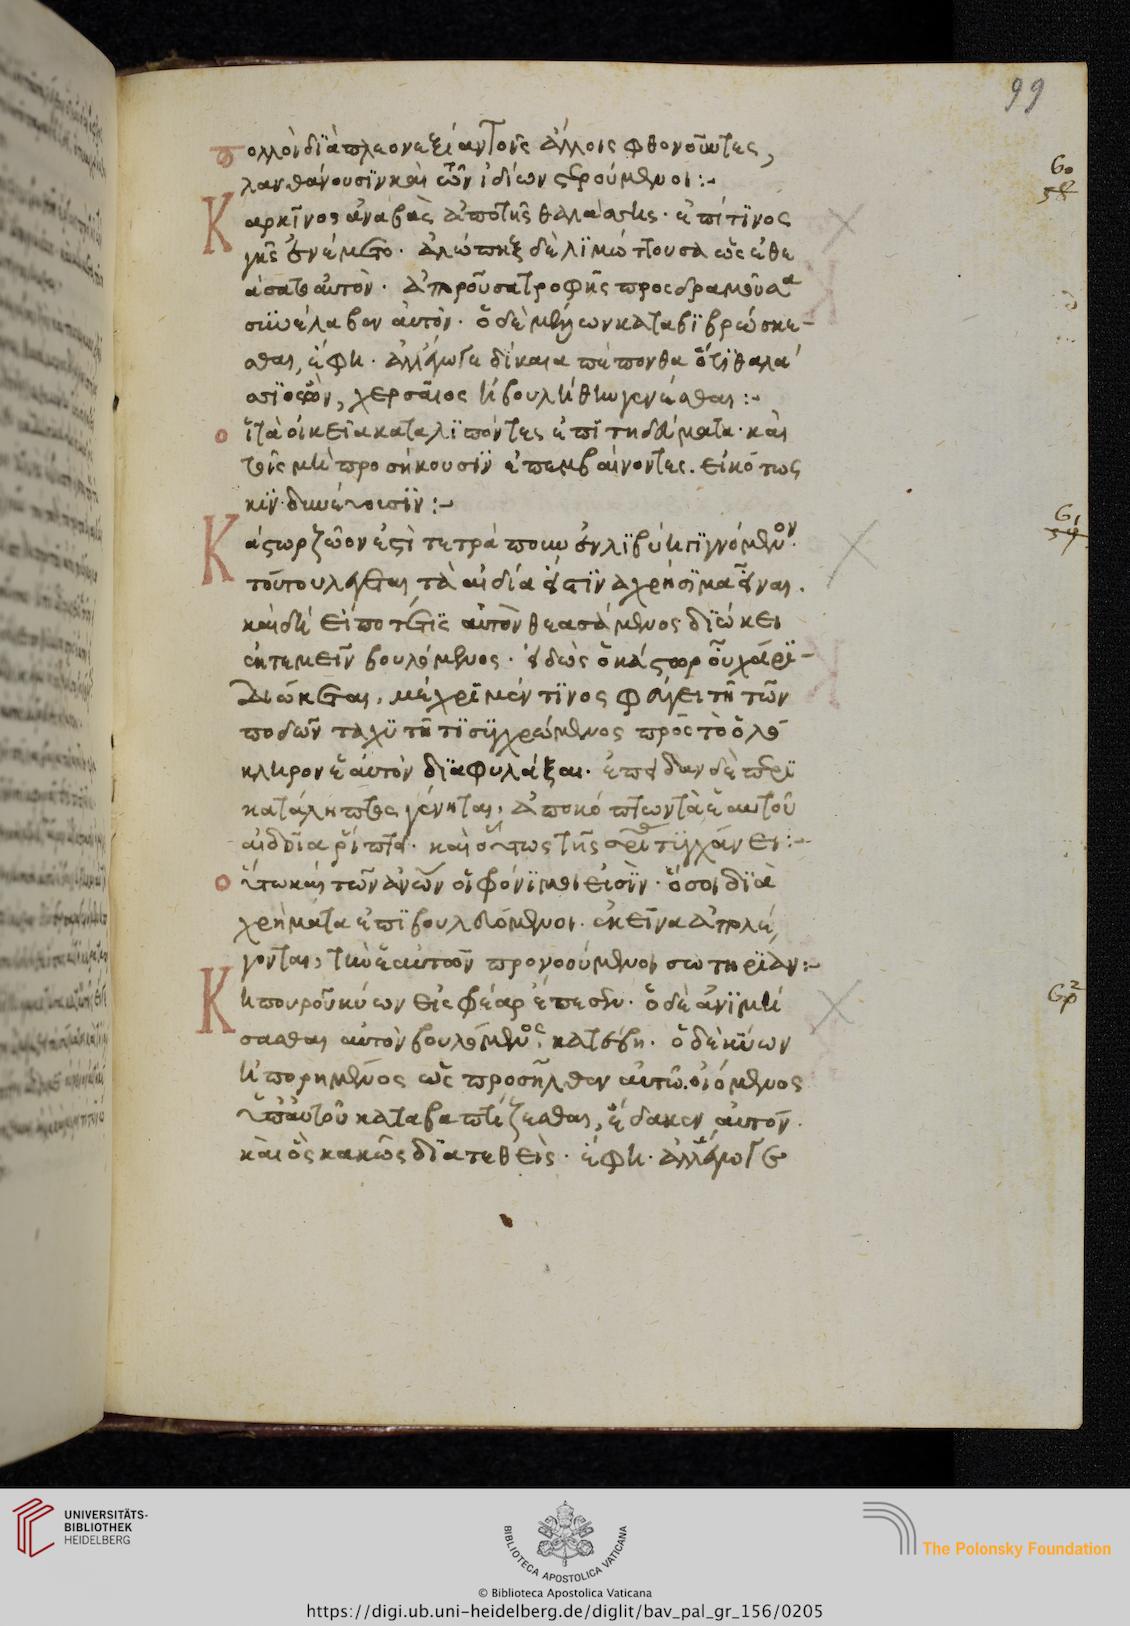 99
πολλοὶ διὰ πλεονεξίαν τοῖς ἄλλοις φθονοῦντες,
λανθάνουσιν καὶ τῶν ἰδίων στερούμενοι :-
60
58
Καρκῖνος ἀναβὰς ἀπὸ τῆς θαλάσσης· ἐπί τινος
γῆς ἐνέμετο· ἀλώπηξ δὲ λιμώττουσα ὡς ἐθε
άσατο αὐτὸν· ἀποροῦσα τροφῆς προσδραμοῦσα
συνέλαβεν αὐτόν· ὁ δὲ μέλλων καταβιβρώσκε-
σθαι, ἔφη· ἀλλ' ἔγωγε δίκαια πέπονθα ὅτι θαλά
σσιος ὢν, χερσαῖος ἠβουλήθην γενέσθαι :-
οἱ τὰ οἰκεῖα καταλιπόντες ἐπιτηδεύματα· καὶ
τοῖς μὴ προσήκουσιν ἐπεμβαίνοντες. εἰκότως
κιν δυνεύουσιν :-
61
59
Κάστωρ ζῶον ἐστὶ τετράπουν ἐν λίβύη γινόμενον·
τούτου λέγεται τὰ αἰδοῖα ἰατρ χρήσιμα εἶναι.
καὶ δή εἴ ποτέ τις αὐτὸν θεασάμενος διώκει
ἐκτεμεῖν βουλόμενος· εἰδὼς ὁ κάστωρ οὗ χάρι-
διώκεται, μέχρι μέν τινος φεύγει τῇ τῶν
ποδῶν ταχύτητι συγχρώμενος πρὸς τὸ ὁλό
κληρον ἑαυτὸν διαφυλάξαι· ἐπειδὰν δὲ περι
κατάληπτος γένηται, ἀποκόπτων τὰ ἑαυτοῦ
αἰδοῖα ῥίπτει· καὶ οὕτως τῆς σωτηρίας τυγχάνει :-
οὕτω καὶ τῶν ἀνων οἱ φρόνιμοι εἰσὶν· ὅσοι διὰ
χρήματα ἐπιβουλευόμενοι· ἐκεῖνα ἀπολέ
γονται, τὴν ἑαυτῶν προνοούμενοι σωτηρίαν :-
62
Κηπουροῦ κύων εἰς φρέαρ ἔπεσεν· ὁ δὲ ἀνιμή
σασθαι αὐτὸν βουλόμενος, κατέβη· ὁ δὲ κύων
ἠπορημένος ὡς προσῆλθεν αὐτῷ. οἰόμενος
ὑπ' αὐτοῦ καταβαπτίζεσθαι, ἔδακεν αὐτόν·
καὶ ὃς κακῶς διατεθεὶς· ἔφη· ἀλλ' ἔγωγε
UNIVERSITÄTS-
BIBLIOTHEK
HEIDELBERG
BIBLIOTECA APOSTOLICA VATICANA
The Polonsky Foundation
© Biblioteca Apostolica Vaticana
https://digi.ub.uni-heidelberg.de/diglit/bav_pal_gr_156/0205